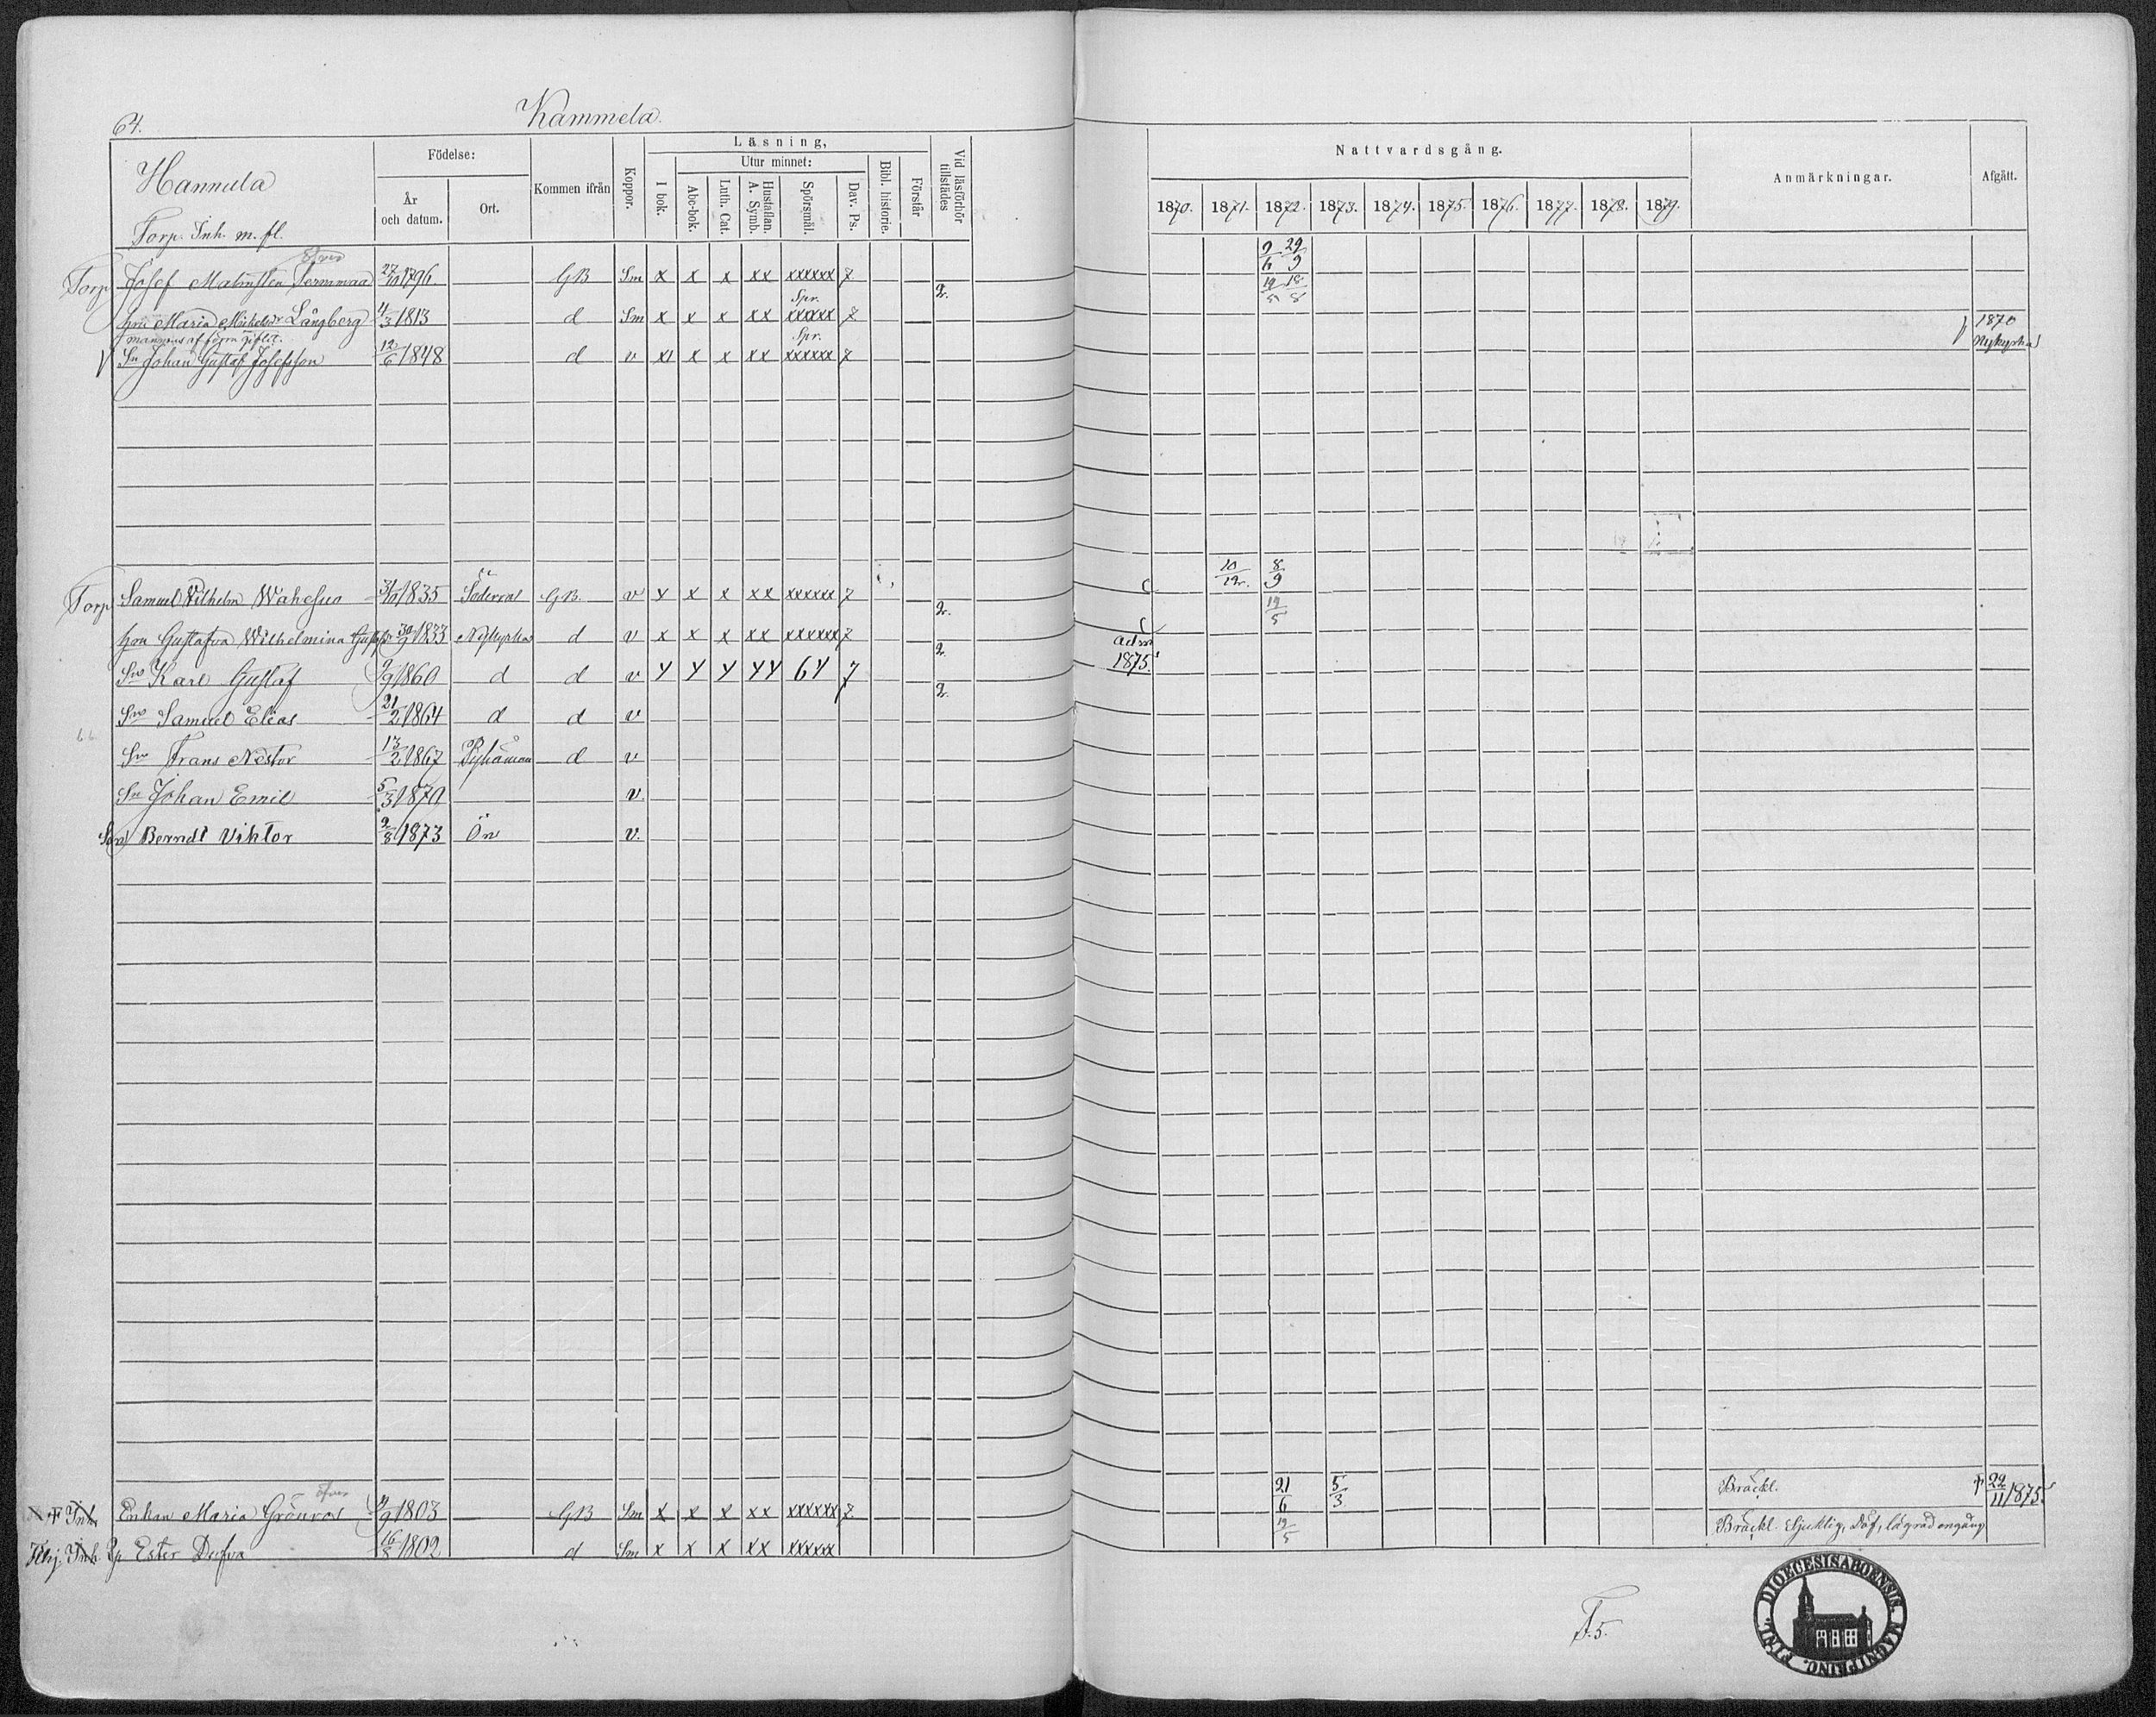 64.
Kammela.
Hannula
Torp. Inh. m. fl.
Födelse:
År och datum.
Ort.
Kommen ifrån
Koppor.
Läsning,
I bok.
Utur minnet:
Abc-bok.
Luth. Cat.
Hustaflan. A. Symb.
Spörsmål.
Dav. Ps.
Bibl. historie.
Förstår
Vid läsförhör tillstädes
Nattvardsgång.
1870. 1871. 1872. 1873. 1874. 1875. 1876. 1877. 1878. 1879.
Anmärkningar.
Afgått.
Torp Josef Malmsten 27/10 1796. GB Sm x x x xx xxxxxx 7 2. 2/6 29/9
Spr. 19/5 18/8
hru Maria Långberg 4/3 1813 d Sm x x x xx xxxxxx 7
Spr.
Sn Johan Gustaf Josefsson 12/6 1848 d v x x x xx xxxxxx 7 1870 Nykyrka
Torp Samuel Wilhelm Wahesuo 31/10 1835 GB. v x x x xx xxxxxx 7 2. c 10/12. 8/9
hru Gustafva Wilhelmina 30/9 1833 Nykyrka d v x x x xx xxxxxx 7 2. c 19/5
Sn Karl Gustaf 9/9 1860 d d v 7 2. adm 1875.
Sn Samuel Elias 21/2 1864 d d v
Sn Frans Nestor 13/2 1867 d v
Sn Johan Emil 5/3 1870 v.
Son Berndt Viktor 2/8 1873 Ön v.
Inh. Enkan Maria Grönroos 1803 GB Sm x x x xx xxxxxx 7 21/6 5/3 Bräckl. † 22/11 1875
Inh. Ester Dufva 16/5 1802 d Sm x x x xx xxxxxx 19/5 Bräckl. Sjuklig, döf,
T.5.
DIOECESIS ABOENSIS. MAGNI PRINC. FINL.